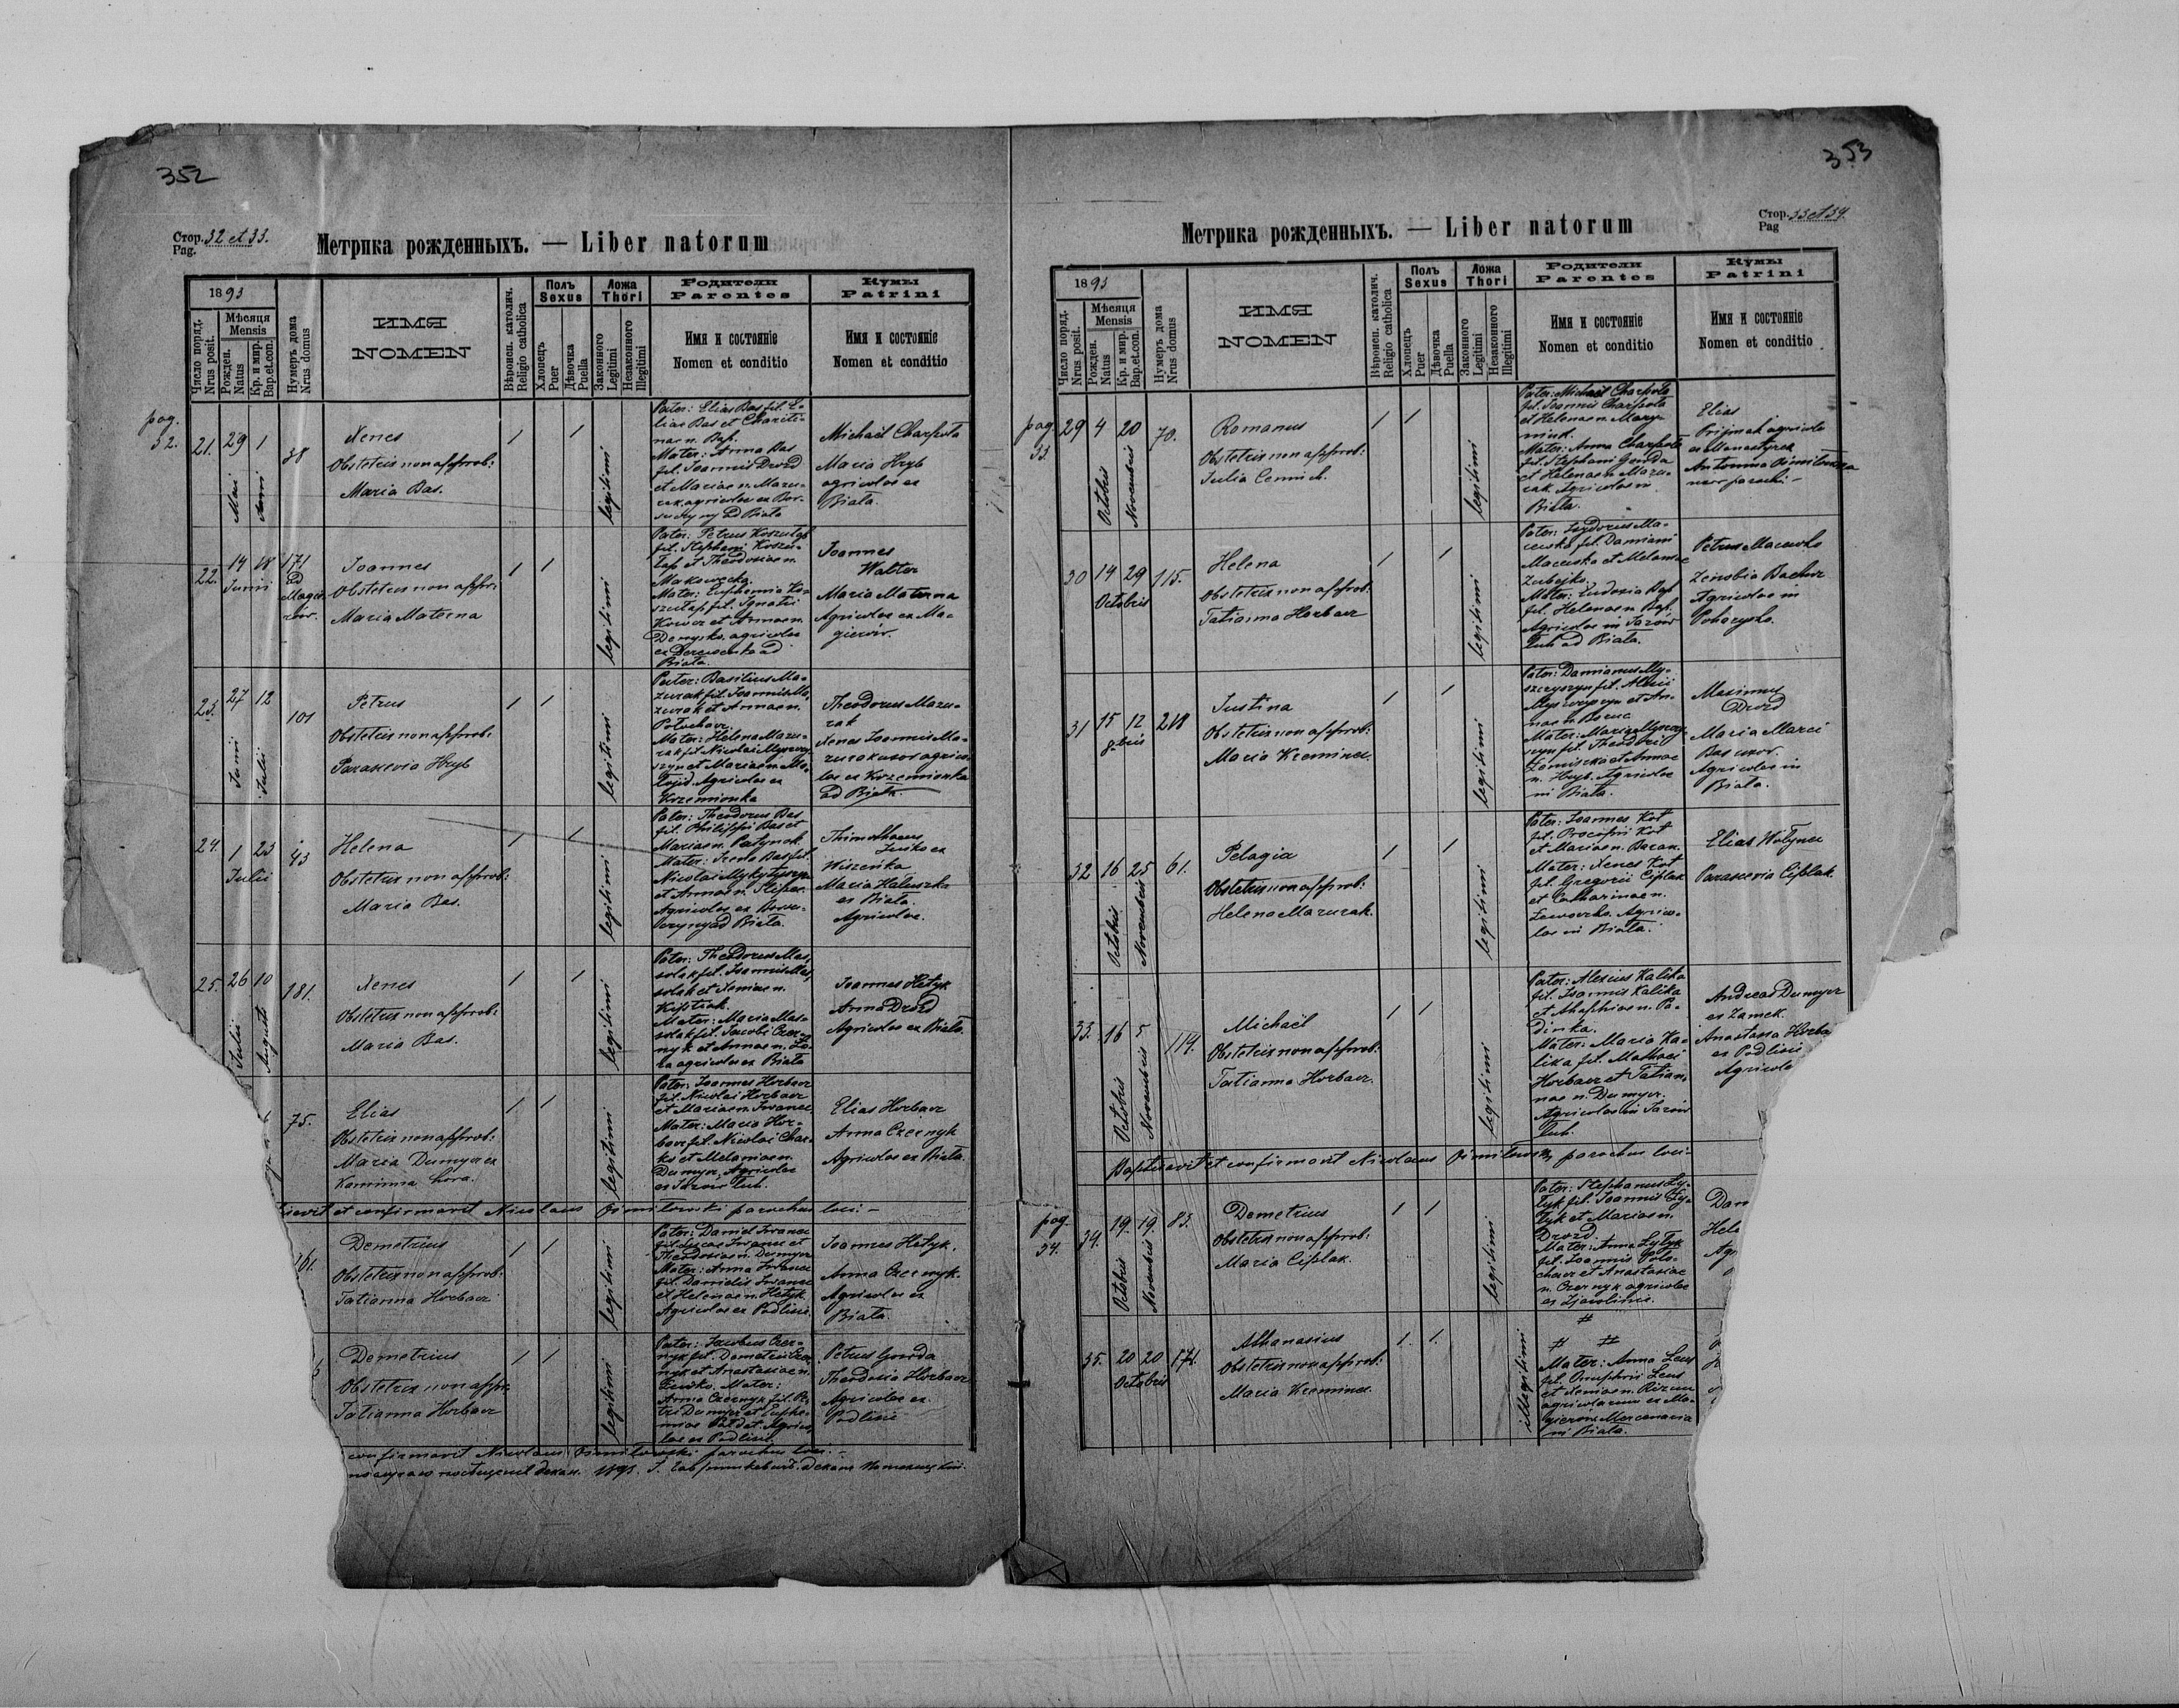 352
Стор. 32 et 33.
Pag.
Метрика рожденныхъ. — Liber natorum
1893
Число поряд.
Nrus posit.
Мѣсяця
Mensis
Рожден.
Natus
Кр. и мир.
Bap.et.con.
Нумеръ дома
Nrus domus
ИМЯ
NOMEN
Вѣроисп. католич.
Religio catholica
Полъ
Sexus
Хлопецъ
Puer
Дѣвочка
Puella
Ложа
Thori
Законного
Legitimi
Незаконного
Illegitimi
Родители
Parentes
Имя и состояніе
Nomen et conditio
Кумы
Patrini
Имя и состояніе
Nomen et conditio
pag.
32.
21. 29 1
Mai
Junii
38
Xenes
Obstetrix non approb:
Maria Bas.
legitimi
Pater: Elias Bas fil. E-
lias Bas et Chariti-
nae n. Bap.
Mater: Anna Bas
fil. Joannis Drozd
et Mariae n. Mazu-
rak agricolae ex Bor-
ad Biała
Michael Charpota
Maria Hryb
agricolae ex
Biała.
22. 14 18
Junii
171
ad
Magie-
rów.
Joannes
Obstetrix non appr:
Maria Materna
legitimi
Pater: Petrus Koszułap
fil. Stephani Koszu-
łap et Theodosiae n.
Makowecky.
Mater: Euphemia Ko-
szułap fil. Ignatii
Kowcz et Annae n.
Demysko. agricolae
ex Derewenka ad
Biała.
Joannes
Walter
Maria Materna
Agricolae ex Ma-
gierów.
23. 27 12
Junii
Julii
101
Petrus
Obstetrix non approb:
Parascevia Hryb
legitimi
Pater: Basilius Ma-
zurak fil. Joannis Ma-
zurak et Annae n.
Potuchacz.
Mater: Helena Mazu-
rak fil. Nicolai Myszczy-
szyn et Mariae n. Ma-
Agricolae ex
Krzemionka
Theodorus Mazu-
rak
Xenes Joannis Ma-
zurak uxor agrico-
lae ex Krzemionka
ad Biała.
24. 1 23
Julii
43
Helena
Obstetrix non approb:
Maria Bas.
legitimi
Pater: Theodorus Bas
fil. Philippi Bas et
Mariae n. Patynok.
Mater: Irena Bas fil.
Nicolai Mykytyszyn
et Annae n.
Agricolae ex
ad Biała.
Thimotheus
ex
Wiszenka
Maria Haluszka
ex Biała.
Agricolae.
25. 26 10
Julii
Augusti
181.
Xenes
Obstetrix non approb:
Maria Bas.
legitimi
Pater: Theodorus Mas-
solak fil. Joannis Mas-
solak et Xeniae n.
Mater: Maria Mas-
solak fil. Jacobi Czer-
nyk et Annae n.
agricolae ex Biała
Joannes Hetyk
Anna Drozd
Agricolae ex Biała.
75.
Elias
Obstetrix non approb:
Maria Dumycz ex
Kaminna hora.
legitimi
Pater: Joannes Horbacz
fil. Nicolai Horbacz
et Mariae n. Iwanec
Mater: Maria Hor-
bacz fil. Nicolai Char-
ko et Melaniae n.
Dumycz. Agricolae
ex Jazów Luh.
Elias Horbacz
Anna Czernyk
Agricolae ex Biała.
et confirmavit Nicolaus parochus loci –
161.
Demetrius
Obstetrix non approb:
Tatianna Horbacz
legitimi
Pater: Daniel Iwanec
fil. Lucae Iwanec et
Theodosiae n. Dumycz
Mater: Anna Iwanec
fil. Danielis Iwanec
et Helenae n. Hetyk.
Agricolae ex Podlisie.
Joannes Hetyk.
Anna Czernyk.
Agricolae ex
Biała.
Demetrius
Obstetrix non appr:
Tatianna Horbacz
legitimi
Pater: Jacobus Czer-
nyk fil. Demetrii Czer-
nyk et Anastasiae n.
Mater:
Anna Czernyk fil. Pe-
tri Dumycz et Euphe-
miae Agrico-
lae ex Podlisie.
Petrus Gowda
Theodosia Horbacz
Agricolae ex.
Podlisie
confirmavit Nicolaus parochus loci. –
353
Стор. 33 et 34.
Pag
Метрика рожденныхъ. — Liber natorum
1893
Число поряд.
Nrus posit.
Мѣсяця
Mensis
Рожден.
Natus
Кр. и мир.
Bap.et.con.
Нумеръ дома
Nrus domus
ИМЯ
NOMEN
Вѣроисп. католич.
Religio catholica
Полъ
Sexus
Хлопецъ
Puer
Дѣвочка
Puella
Ложа
Thori
Законного
Legitimi
Незаконного
Illegitimi
Родители
Parentes
Имя и состояніе
Nomen et conditio
Кумы
Patrini
Имя и состояніе
Nomen et conditio
pag
33.
29 4 20
Octobris
Novembris
70.
Romanus
Obstetrix non approb:
Julia
legitimi
Pater: Michael Charpota
fil. Joannis Charpota
et Helenae n.
Mater: Anna Charpota
fil. Stephani Gowda
et Helenae n. Mazu-
rak. Agricolae in
Biała.
Elias
Prijmak agricola
ex Monastyrek
Antonina
uxor parochi –
30 14 29
Octobris
115.
Helena
Obstetrix non approb:
Tatianna Horbacz
legitimi
Pater: Isydorus Ma-
cewko fil. Damiani
Macewko et Melaniae
Zubejko.
Mater: Eudoxia Bap
fil. Helenae n. Bap.
Agricolae in Jazów
Luh ad Biała.
Petrus Macewko
Zenobia Bachur
Agricolae in
Pohorysko.
31 15 12
9-bris
218
Justina
Obstetrix non approb:
Maria Kreminec.
legitimi
Pater: Damianus My-
szczyszyn fil. Alexii
Myszczyszyn et An-
nae n.
Mater: Maria Myszczy-
szyn fil. Theodori
et Annae
n. Hryb. Agricolae
in Biała.
Maximus
Drozd
Maria Marci
Bas uxor.
Agricolae in
Biała.
32 16 25
Octobris
Novembris
61.
Pelagia
Obstetrix non approb:
Helena Mazurak.
legitimi
Pater: Joannes Kot
fil. Procopii Kot
et Mariae n. Baran.
Mater: Xenes Kot
fil. Gregorii Ciplak
et Catharinae n.
Agrico-
lae in Biała.
Elias Wołynec
Parascevia Ciplak.
33. 16 5
Octobris
Novembris
114.
Michaël
Obstetrix non approb:
Tatianna Horbacz.
legitimi
Pater: Alexius Kalika
fil. Joannis Kalika
et Ahaphiae n. Pa-
dinka.
Mater: Maria Ka-
lika fil. Mathaei
Horbacz et Tatian-
nae n. Dumycz.
Agricolae in Jazów
Luh.
Andreas Dumycz
ex Zamek.
Anastasia Horba
ex Podlisie
Agricola
Baptisavit et confirmavit Nicolaus parochus loci
pag.
34.
34. 19. 19.
Octobris
Novembris
83.
Demetrius
Obstetrix non approb:
Maria Ciplak.
legitimi
Pater: Stephanus Ly-
tyk fil. Joannis Ly-
tyk et Mariae n.
Drozd
Mater: Anna Lytyk
fil. Joannis Poto-
chacz et Anastasiae
n. Czernyk agricolae
ex
Dam
Hele
Ag
35. 20 20
Octobris
171.
Athanasius
Obstetrix non approb:
Maria Kreminec.
illegitimi
# # #
Mater: Anna Leus
fil. Onuphrii Leus
et Xeniae n.
agricolarum ex Ma-
gierów Mercenaria
in Biała.